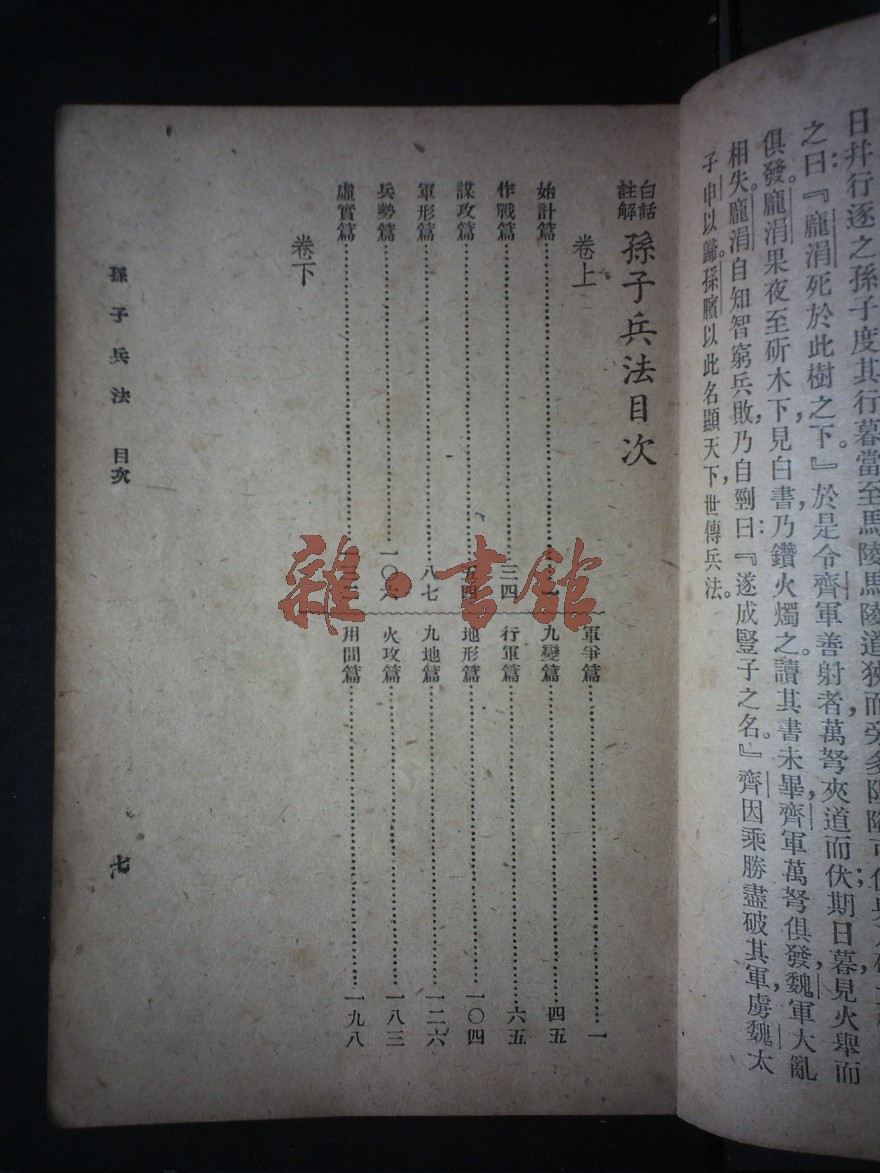 日并行逐之孫子度其行暮當至馬陵馬陵道狹而旁多
之曰：『龐涓死於此樹之下。』於是令齊軍善射者萬弩夾道而伏期日暮見火舉而
俱發。龐涓果夜至斫木下，見白書，乃鑽火燭之。讀其書未畢，齊軍萬弩俱發，魏軍大亂
相失。龐涓自知智窮兵敗，乃自剄曰：『遂成豎子之名。』齊因乘勝盡破其軍，虜魏太
子申以歸。孫臏以此名顯天下，世傳兵法。
白話註解 孫子兵法目次
卷上
始計篇
作戰篇 三四
謀攻篇 五四
軍形篇 八七
兵勢篇 一〇六
虛實篇
卷下
軍爭篇 一
九變篇 四五
行軍篇 六五
地形篇 一〇四
九地篇 一二六
火攻篇 一八三
用間篇 一九八
孫子兵法 目次
七
雜·書館